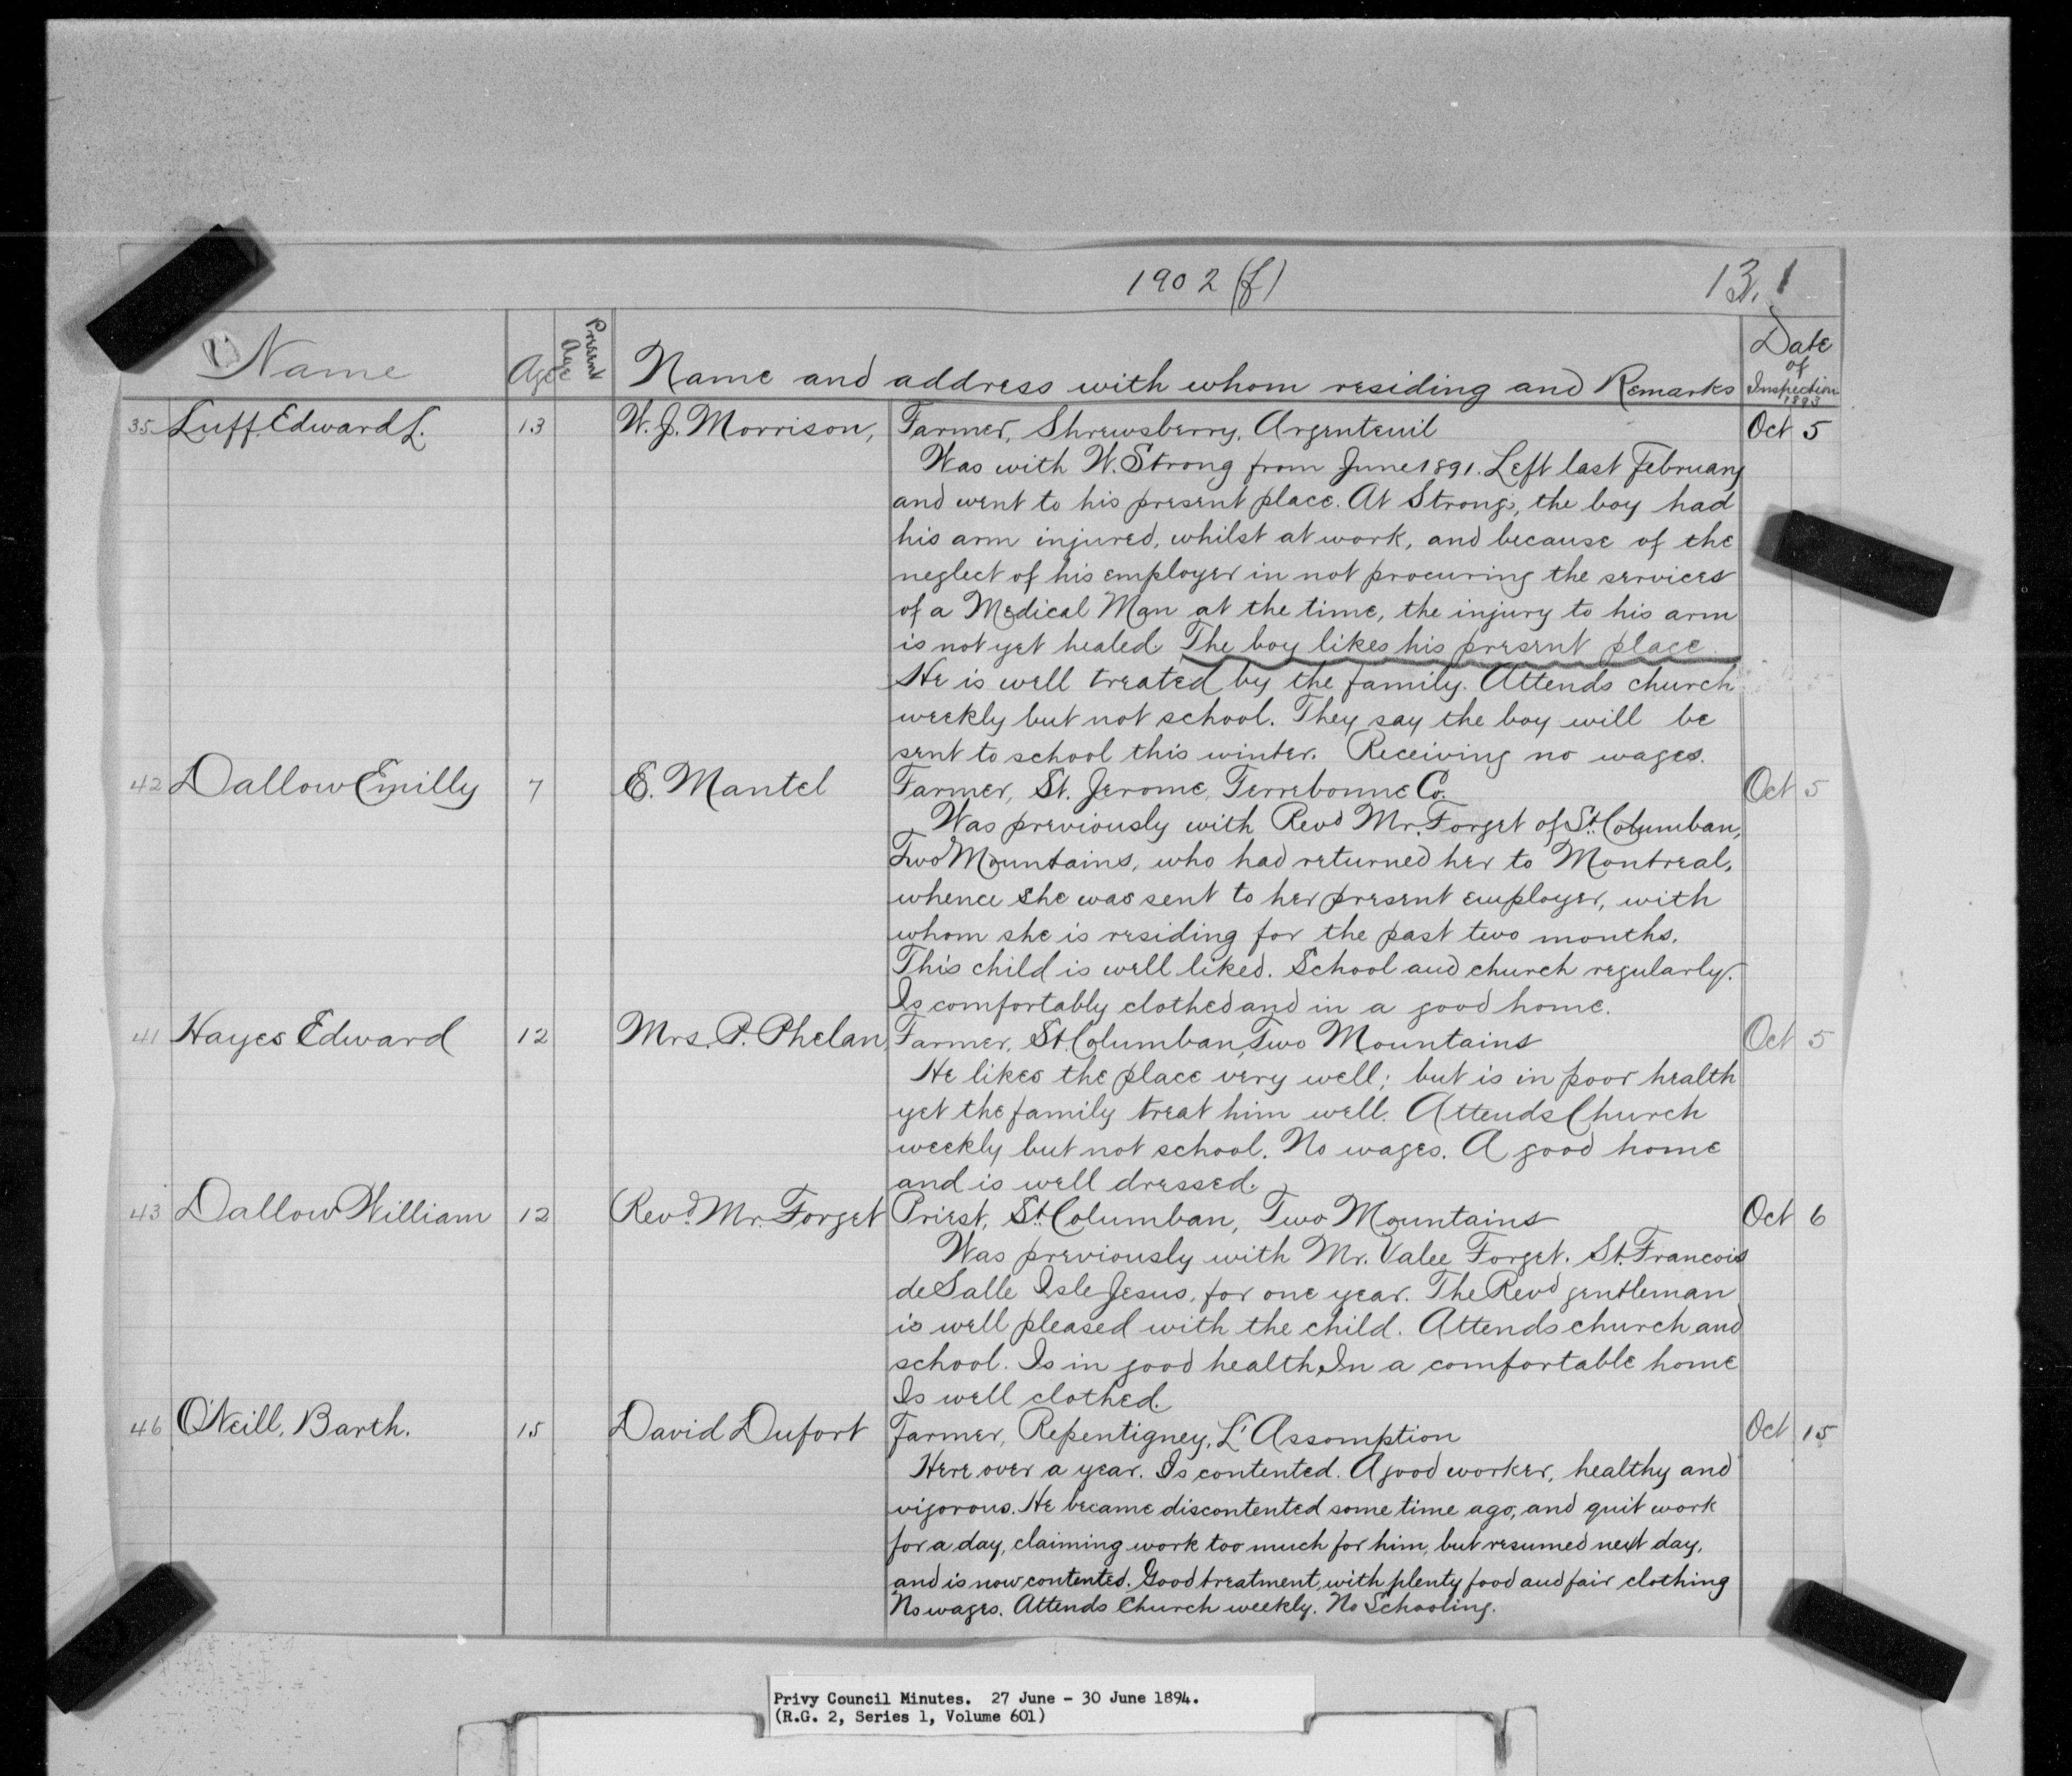 1902 (f)
13.1
Name
Age
Present Age
Name and address with whom residing and Remarks
Date of Inspection 1893
35 Luff, Edward L. 13 W. J. Morrison, Farmer, Shrewsberry, Argenteuil Oct 5
Was with W. Strong from June 1891. Left last February
and went to his present place. At Strong's, the boy had
his arm injured, whilst at work, and because of the
neglect of his employer in not procuring the services
of a Medical Man at the time, the injury to his arm
is not yet healed. The boy likes his present place.
He is well treated by the family. Attends church
weekly but not school. They say the boy will be
sent to school this winter. Receiving no wages.
42 Dallow Emilly 7 E. Mantel Farmer, St. Jerome, Terrebonne Co. Oct 5
Was previously with Revd Mr. Forget of St. Columban,
Two Mountains, who had returned her to Montreal,
whence she was sent to her present employer, with
whom she is residing for the past two months.
This child is well liked. School and church regularly.
Is comfortably clothed and in a good home.
41 Hayes Edward 12 Mrs. P. Phelan, Farmer, St. Columban, Two Mountains Oct 5
He likes the place very well; but is in poor health
yet the family treat him well. Attends Church
weekly but not school. No wages. A good home
and is well dressed.
43 Dallow William 12 Revd. Mr. Forget Priest, St. Columban, Two Mountains Oct 6
Was previously with Mr. Valee Forget. St. Francois
de Salle Isle Jesus, for one year. The Revd gentleman
is well pleased with the child. Attends church and
school. Is in good health, In a comfortable home
Is well clothed.
46 O'Neill, Barth. 15 David Dufort Farmer, Repentigney, L'Assomption Oct 15
Here over a year. Is contented. A good worker, healthy and
vigorous. He became discontented some time ago, and quit work
for a day, claiming work too much for him, but resumed next day,
and is now contented. Good treatment, with plenty food and fair clothing
No wages. Attends Church weekly. No Schooling.
Privy Council Minutes. 27 June - 30 June 1894.
(R.G. 2, Series 1, Volume 601)